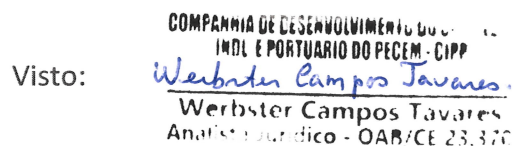 COMPANHIA DE DESENVOLVIMENTO DO
Visto: INDL E PORTUARIO DO PECEM - CIPP
Werbster Campos Tavares.
Werbster Campos Tavares
Analista Jurídico - OAB/CE 23.370